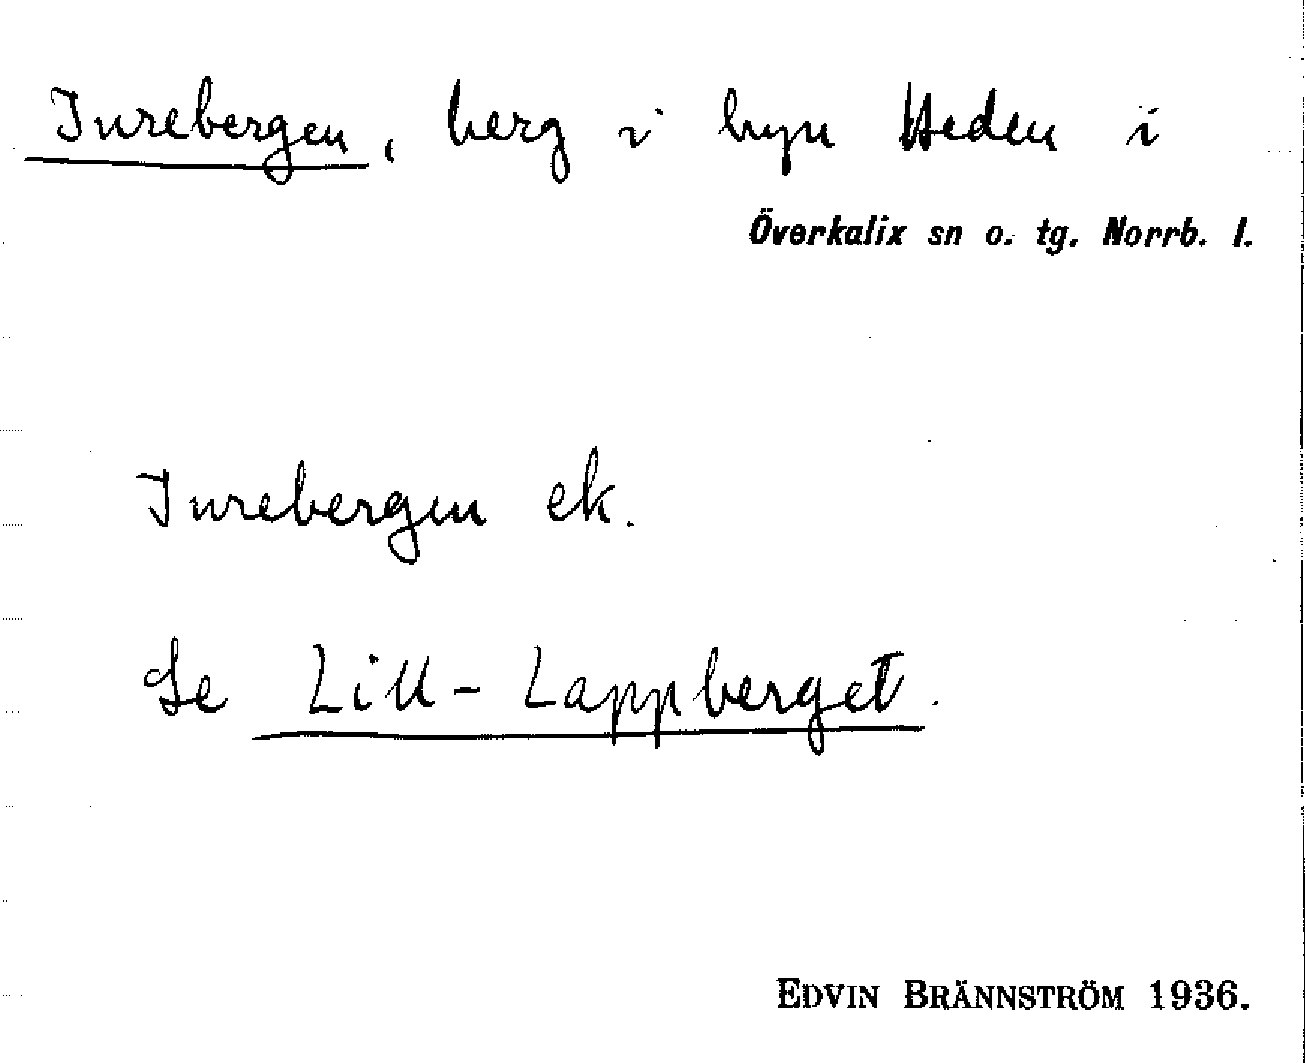 Jurebergen, berg i byn Heden i
Överkalix sn o. tg. Norrb. l.
Jurebergen ek.
Se Lill-Lappberget.
EDVIN BRÄNNSTRÖM 1936.